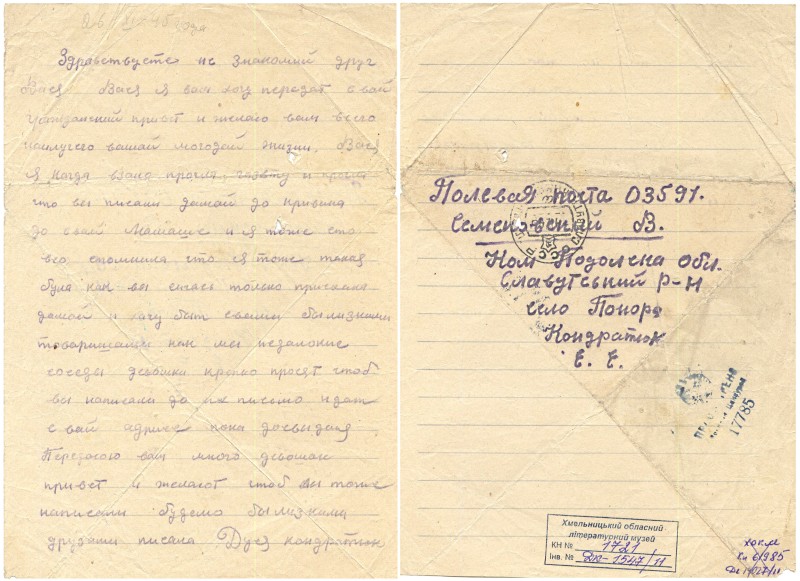 26 II 45 года
Здравствуете не знакомий друг
Вася Вася я вам хочу передат свай
гражданский привет и желаю вам всего
наилучего вашай молодой жизни. Вася
я когда взала
что вы писали дамай до
до свай Мамаше и я тоже сто
всо споминла что я тоже такая
була как вы сичас только прислали
дамай и хочу быт своими былизкими
товарищами как мы
соседы девошки крепко просят чтоб
вы написали до их писмо и дат
свай адрисс пока досвиданя
Передаю вам много девошак
привет и желают чтоб вы тоже
написали будемо былизкими
друзями писала Дуся кондратюк
Полевая почта 03591.
Семеновский В.
Кам Подолска обл.
Славутський р-н
село Понора
Кондратюк
Е. Е.
СССР
17785
Хмельницький обласний
літературний музей
КН № 1721
Інв. № Дк-1547/11
ХОКЛМ